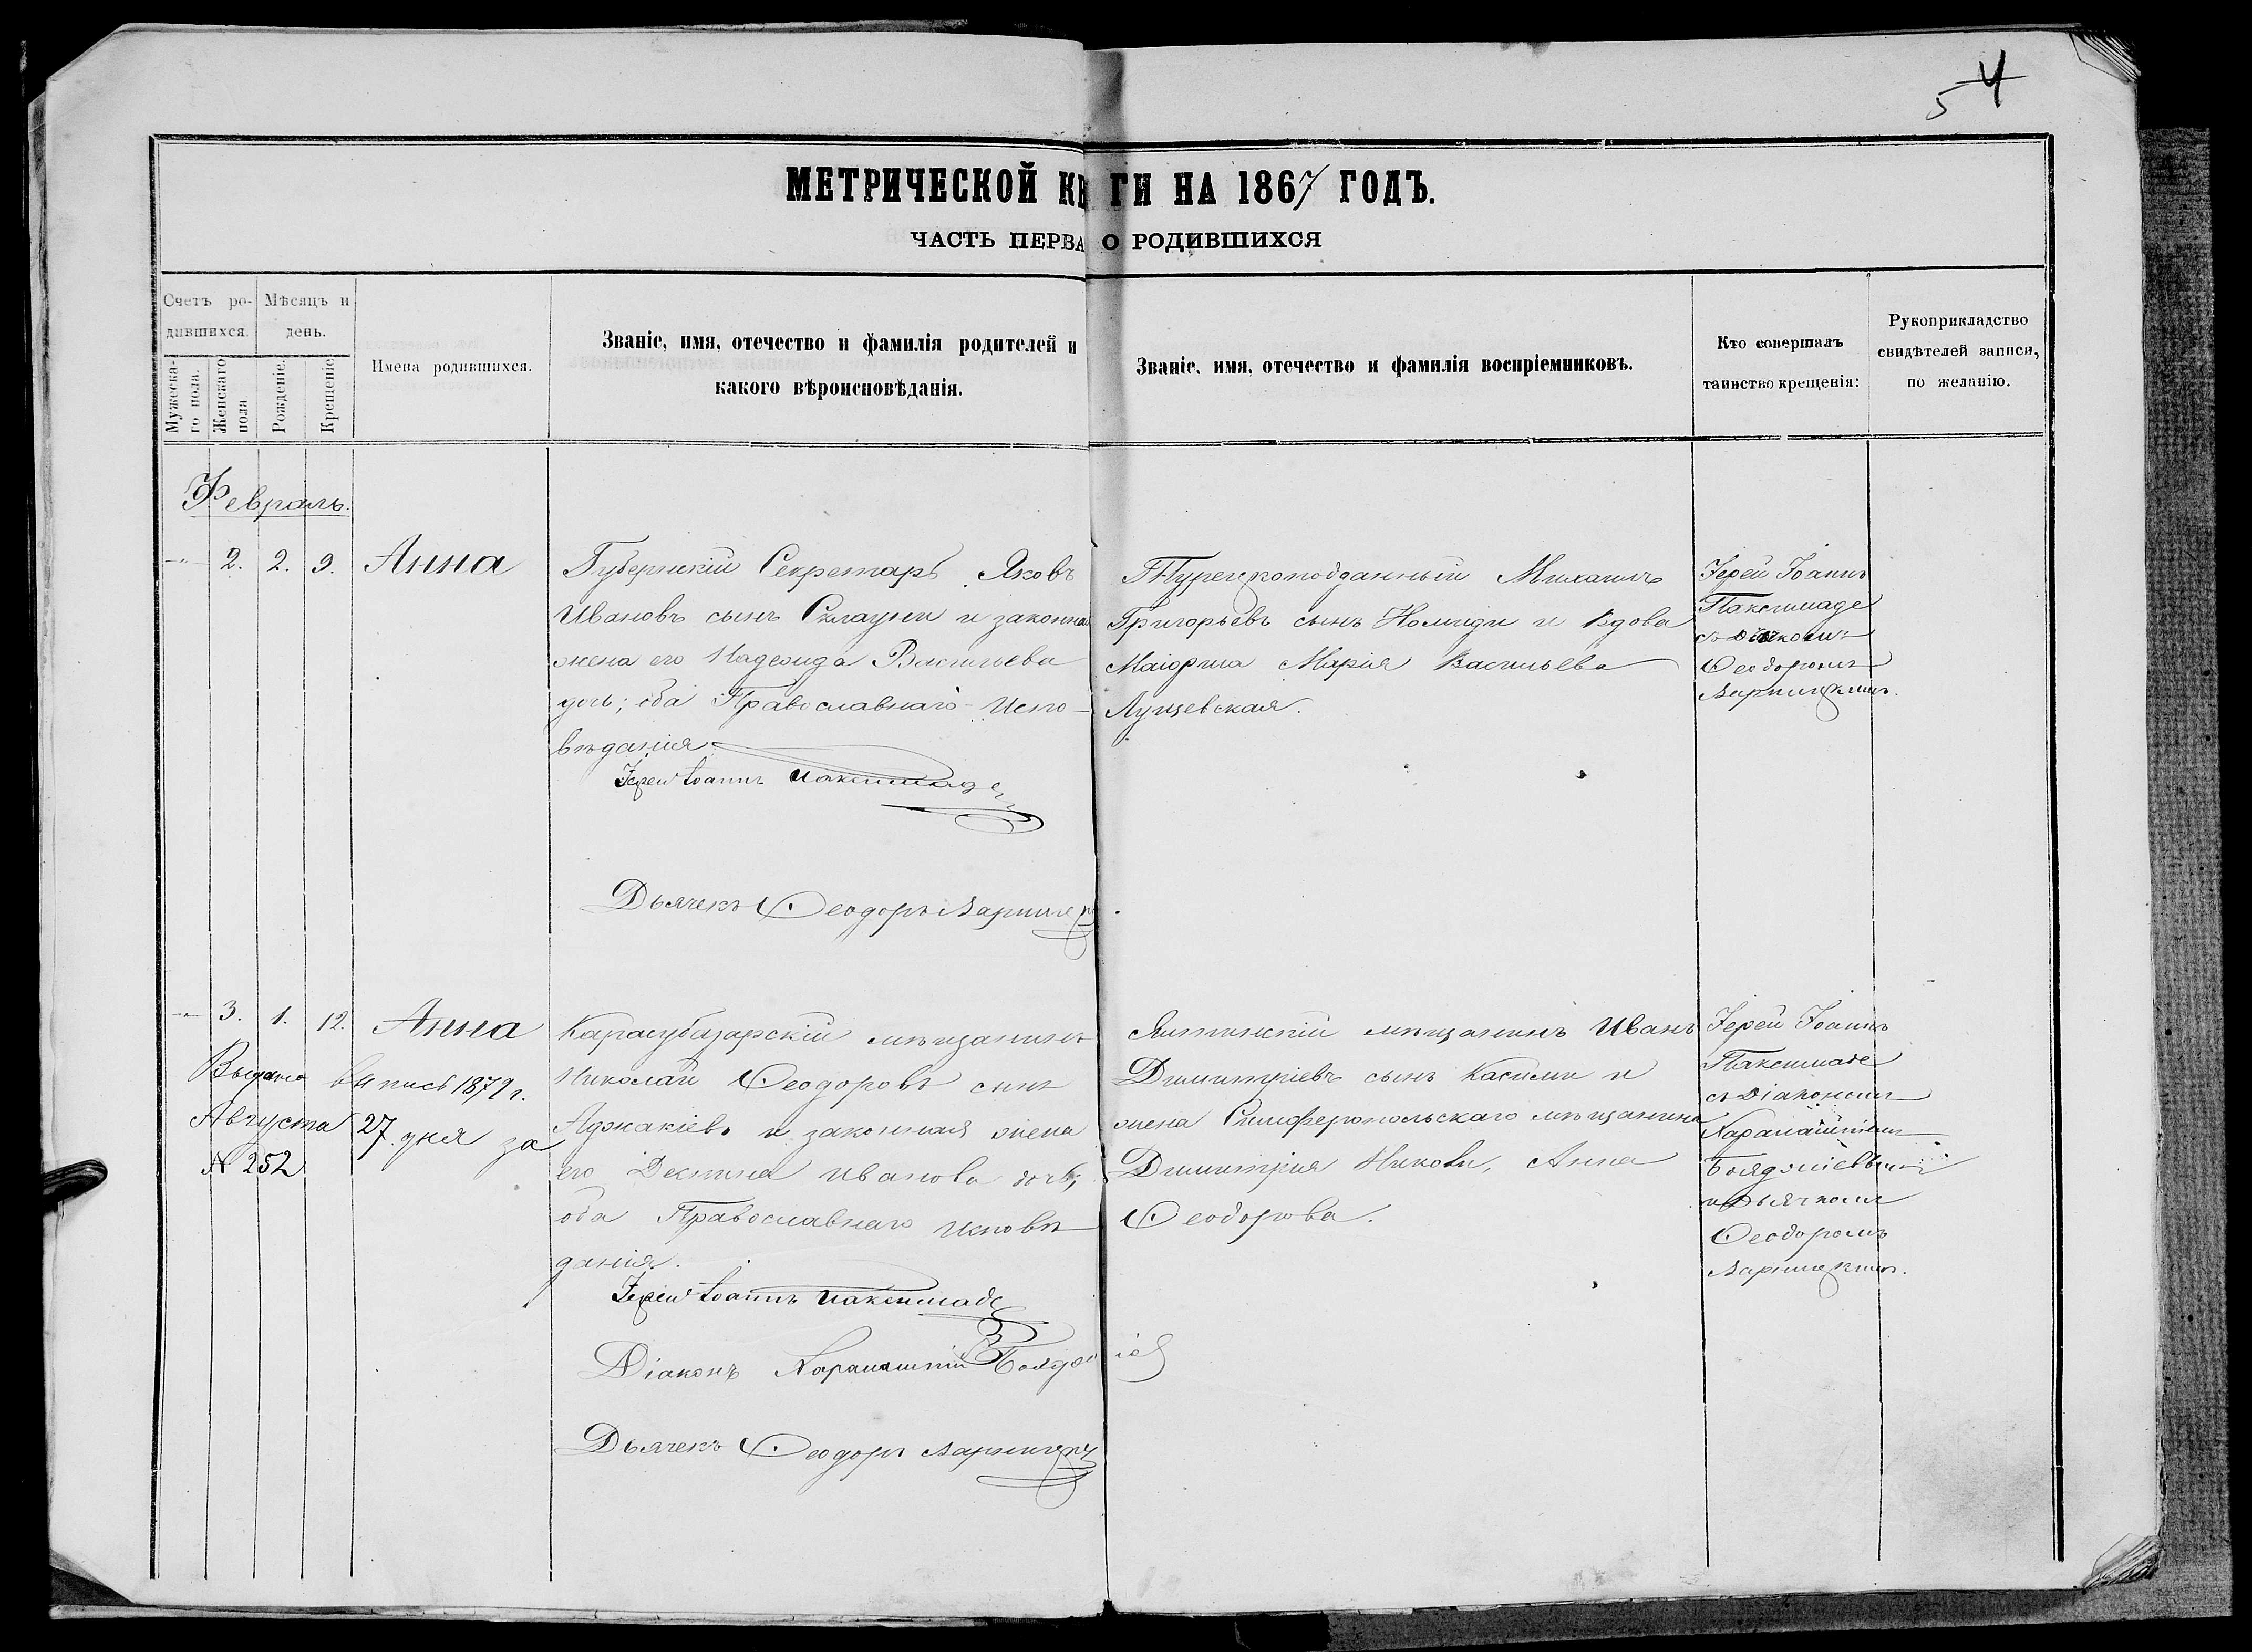 5 4
МЕТРИЧЕСКОЙ КН ГИ НА 1867 ГОДЪ.
ЧАСТЬ ПЕРВА О РОДИВШИХСЯ
Счетъ ро-
дившихся.
Мужеска-
го пола.
Женскаго
пола
Мѣсяцъ и
день.
Рожденіе.
Крещеніе
Имена родившихся.
Званіе, имя, отечество и фамилія родителей и
какого вѣроисповѣданія.
Званіе, имя, отечество и фамилія воспріемниковъ.
Кто совершалъ
таинство крещенія:
Рукоприкладство
свидѣтелей записи,
по желанію.
Февраль.
2. 2. 9. Анна
Губернскій Секретарь Яковъ
Ивановъ сынъ Склауни и законная
жена его Надежда Васильева
дочь; оба Православнаго Испо-
вѣданія.
Іерей Іоаннъ Паксимаде
Дьячекъ Ѳеодоръ Варницкі
Турецкоподданный Михаилъ
Григорьевъ сынъ Номиди и вдова
Маіорша Марія Васильева
Лущевская.
Іерей Іоаннъ
Паксимаде
съ дьячкомъ
Ѳеодоромъ
Варницкимъ.
3. 1. 12. Анна
Выдана выпись 1879 г.
Августа 27 дня за
№ 252
Карасубазарскій мѣщанинъ
Николай Ѳеодоровъ сынъ
Аджакіевъ и законная жена
его Деспина Иванова дочь,
оба Православнаго исповѣ
данія.
Іерей Іоаннъ Паксимаде
Діаконъ Харалампій Бояджіев
Дьячекъ Ѳеодоръ Варницкі
Ялтинскій мѣщанинъ Иванъ
Димитріевъ сынъ Касими и
жена Симферопольскаго мѣщанина
Димитрія Никови, Анна
Ѳеодорова.
Іерей Іоаннъ
Паксимаде
съ Діакономъ
Харалампіемъ
Бояджіевымъ
и Дьячкомъ
Ѳеодоромъ
Варницкимъ.